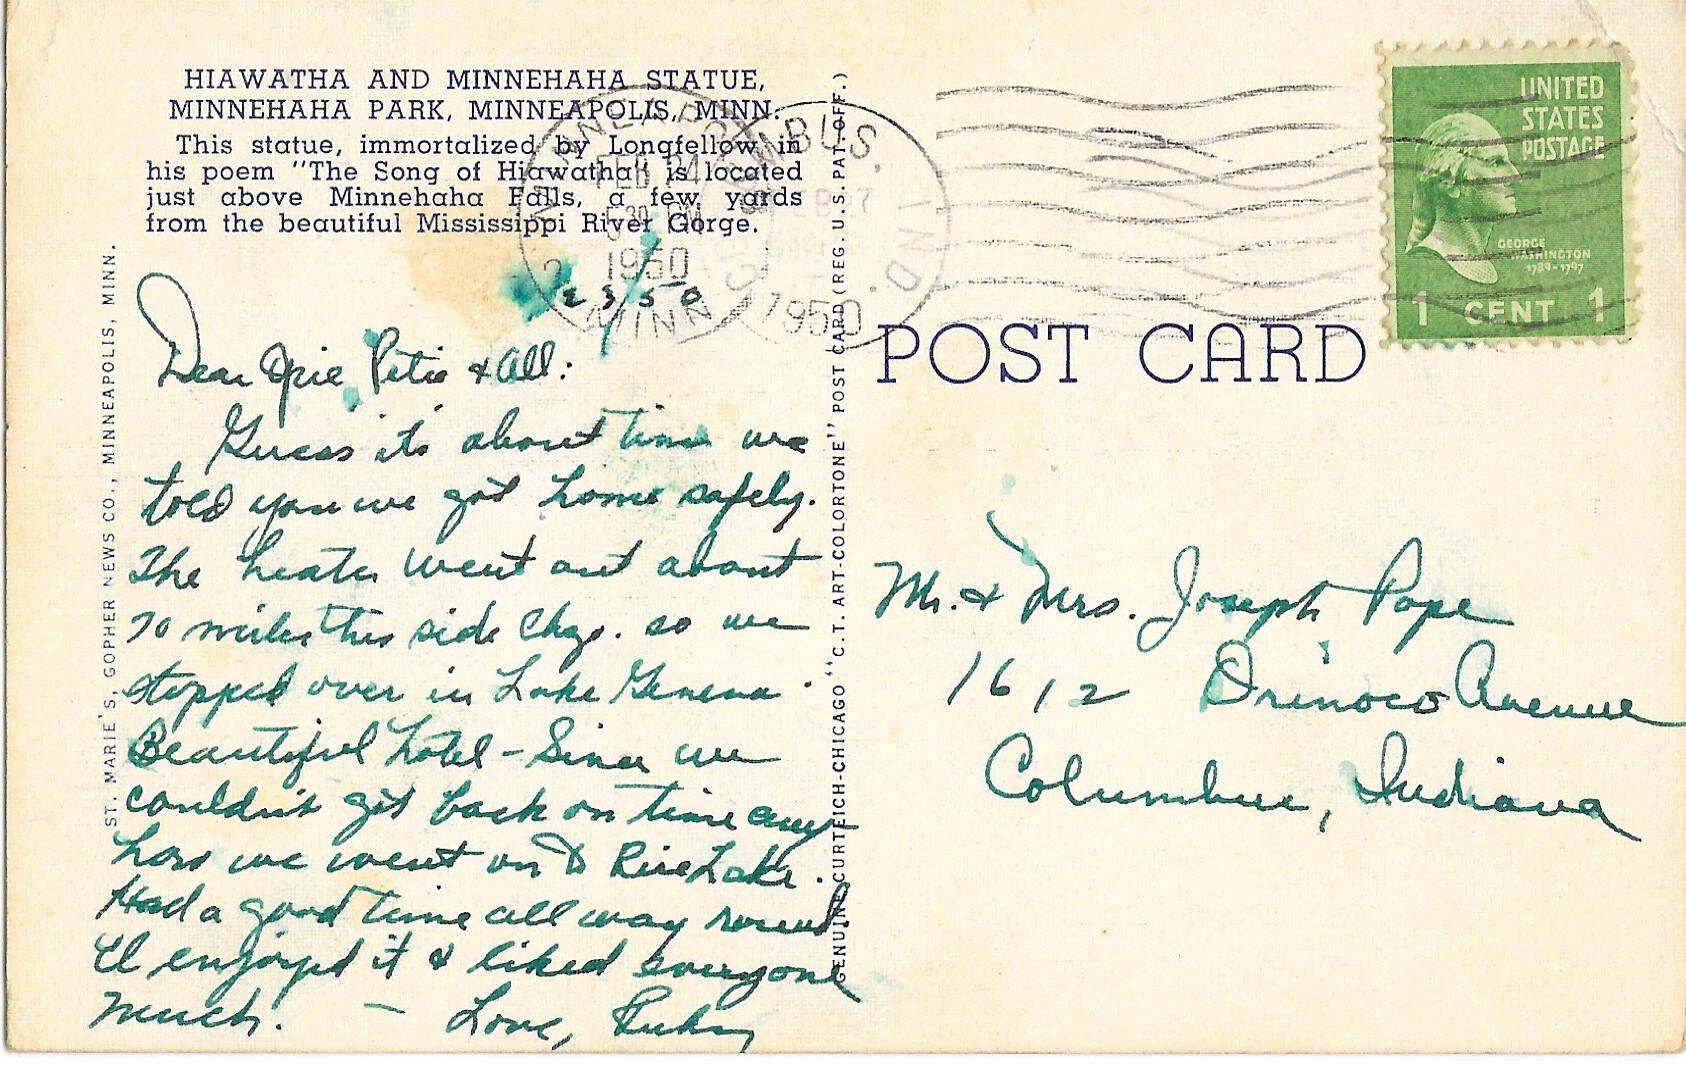 HIAWATHA AND MINNEHAHA STATUE,
MINNEHAHA PARK, MINNEAPOLIS, MINN.
This statue, immortalized by Longfellow in
his poem "The Song of Hiawatha" is located
just above Minnehaha Falls, a few yards
from the beautiful Mississippi River Gorge.
MINNEAPOLIS
FEB 24
5 30 PM
1950
2 MINN
COLUMBUS, IND.
FEB 27
1950
2 3 5 0
Dear Opie Petie & All:
Guess it's about time we
told you we got home safely.
The heater went out about
70 miles this side Chgo. so we
stopped over in Lake Geneva.
Beautiful hotel - Since we
couldn't get back on time any
how we went on to Rice Lake.
Had a good time all way round
El enjoyed it & liked everyone
much. - Love, Ruby
ST. MARIE'S, GOPHER NEWS CO., MINNEAPOLIS, MINN.
GENUINE CURTEICH-CHICAGO "C.T. ART-COLORTONE" POST CARD (REG. U.S. PAT. OFF.)
POST CARD
UNITED
STATES
POSTAGE
GEORGE
WASHINGTON
1789-1797
1 CENT 1
Mr. & Mrs. Joseph Pope
1612 Orinoco Avenue
Columbus, Indiana